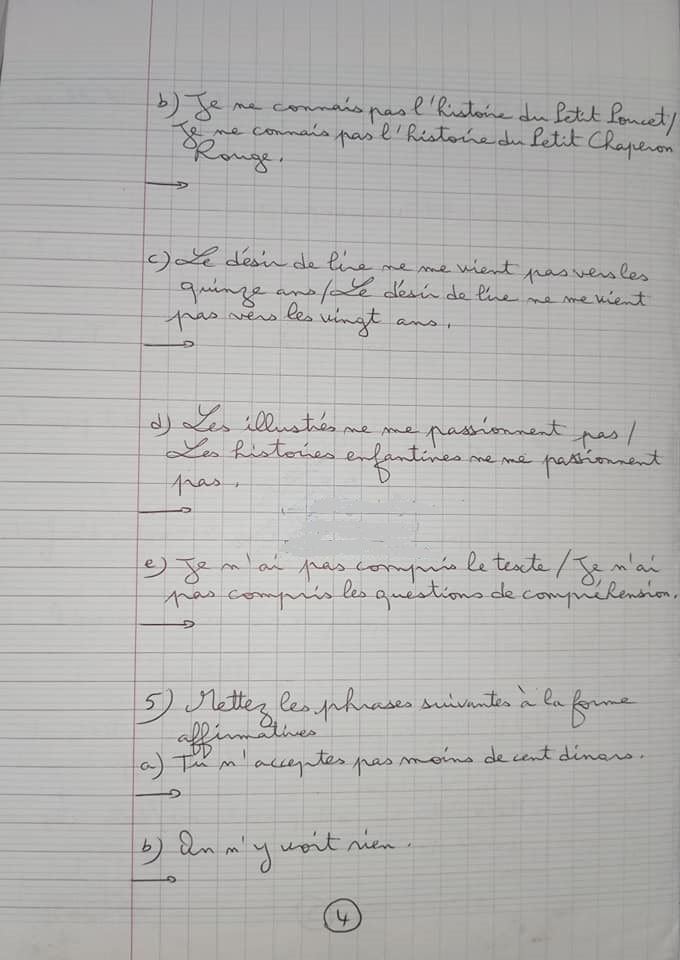 b) Je ne connais pas l'histoire du Petit Poucet/
Je ne connais pas l'histoire du Petit Chaperon
Rouge.
→
c) Le désir de lire ne me vient pas vers les
quinze ans / Le désir de lire ne me vient
pas vers les vingt ans.
→
d) Les illustrés ne me passionnent pas /
Les histoires enfantines ne me passionnent
pas.
→
e) Je n'ai pas compris le texte / Je n'ai
pas compris les questions de compréhension.
→
5) Mettez les phrases suivantes à la forme
affirmatives
a) Tu n'acceptes pas moins de cent dinars.
→
b) On n'y voit rien.
→
4